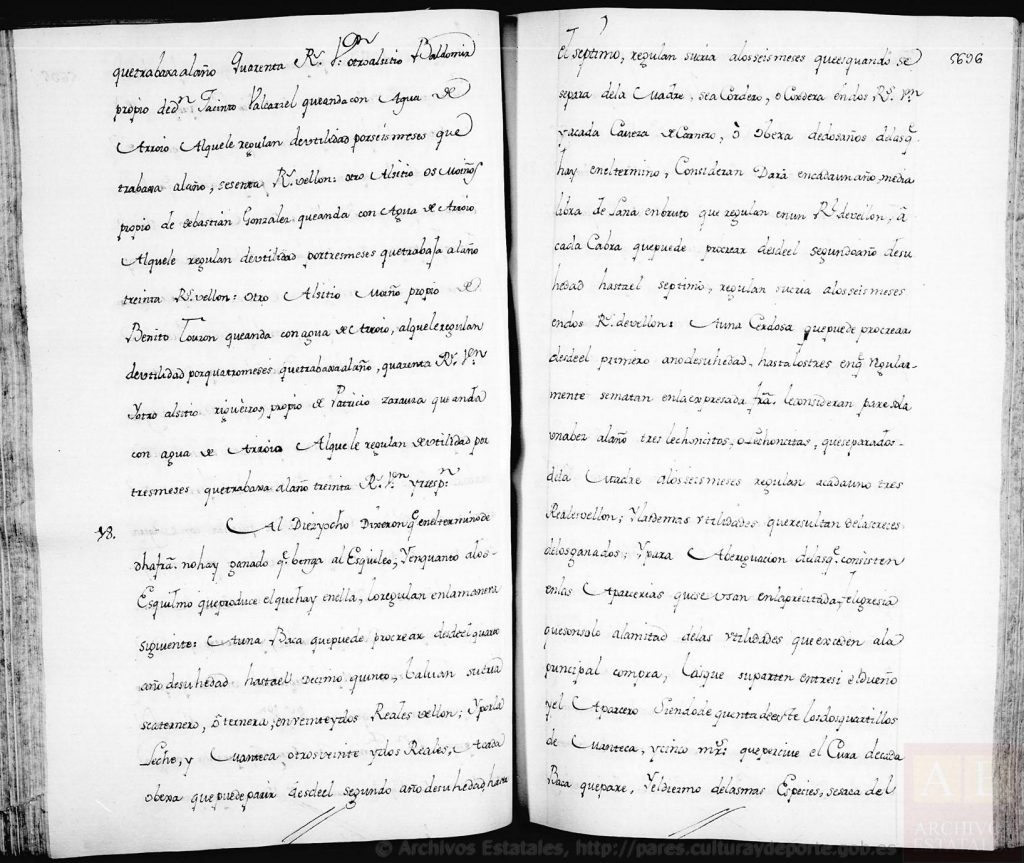 quetrabaxa alaño Quarenta Rs. Vn: otro alsitio Baldomir
propio de Dn. Jacinto Valcarzel queanda con Agua de
Arroio Alquele regulan deutilidad porseismeses que
trabaxa alaño, sesenta Rs. vellon: otro Alsitio os Moiños
propio de sebastián Gonzalez queanda con Agua de Arroio
Alquele regulan deutilidad portresmeses quetrabaxa alaño
treinta Rs. vellon: otro Alsitio Moiño propio de
Benito Touron queanda con agua de Arroio, alquele regulan
deutilidad porquatromeses quetrabaxa alaño, quarenta Rs. Vn
Yotro alsitio rigueiro, propio de Patricio zarauza que anda
con agua de Arroio Alquele regulan deutilidad por
tresmeses quetrabaxa alaño treinta Rs. Vn. yrespn.
18. Al Diezyocho Dixeron qe. enel termino de
dha fra. nohay ganado qe. benga al Esquileo, Yenquanto alos
Esquilmo queproduce elquehay enella, loregulan enlamanera
siguiente: Auna Baca quepuede procrear desdeel quarto
año desuhedad hastael decimo quinto, baluan sucria
seaternero, ô ternera, enveinteydos Reales vellon; Yporla
Leche, y Manteca otrosveinte ydos Reales, Acada
obexa quepuede parir desdeel segundo año desuhedad, hasta
el septimo, regulan sucria alosseismeses queesquando se
separa dela Madre, sea Cordero, o Cordera endos Rs. Vn
Yacada Caveza de Carnero, ò obexa dedosaños delasqe.
hay enel termino, Consideran Dara encadaunaño, media
libra de Lana enbruto que regulan enun Rl. devellon, â
cada Cabra quepuede procrear desdeel segundoaño desu
hedad hastael septimo, regulan sucria alosseismeses
endos Rs. devellon: Auna Cerdosa quepuede procrear
desdeel primero año desuhedad, hasta lostres enqe. regular-
mente sematan enlaexpresada fra. leconsideran pare sola
unabez alaño tres lechoncitos, o Lechoncitas, queseparados
dela Madre alosseismeses regulan acadauno tres
Realesvellon; Ylasdemas utilidades queresultan delascreces
delosganados; Ypara Aberiguacion delasqe. consisten
enlas Aparcerias quese usan enlaprecitada feligresia
quesonsolo alamitad delas utilidades queexceden ala
principal compra, Lasque separten entresi elDueño
yel Aparcero Siendode quentadeeste losdosquartillos
de Manteca, ycinco mrs. quepercive el Cura decada
Baca quepare, Yeldiezmo delasmas Especies, sesaca del
5696
© Archivos Estatales, http://pares.culturaydeporte.gob.es
ARCHIVO
ESTATAL